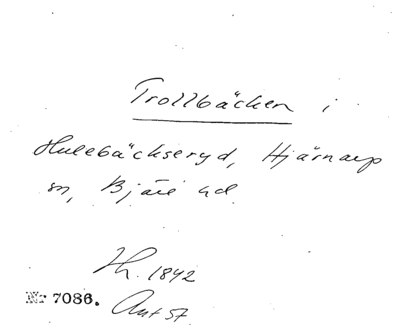 Trollbäcken i
Hulebäckseryd, Hjärnarp
sn, Bjäre hd.
Th. 1842
Nr 7086.
Ant 57